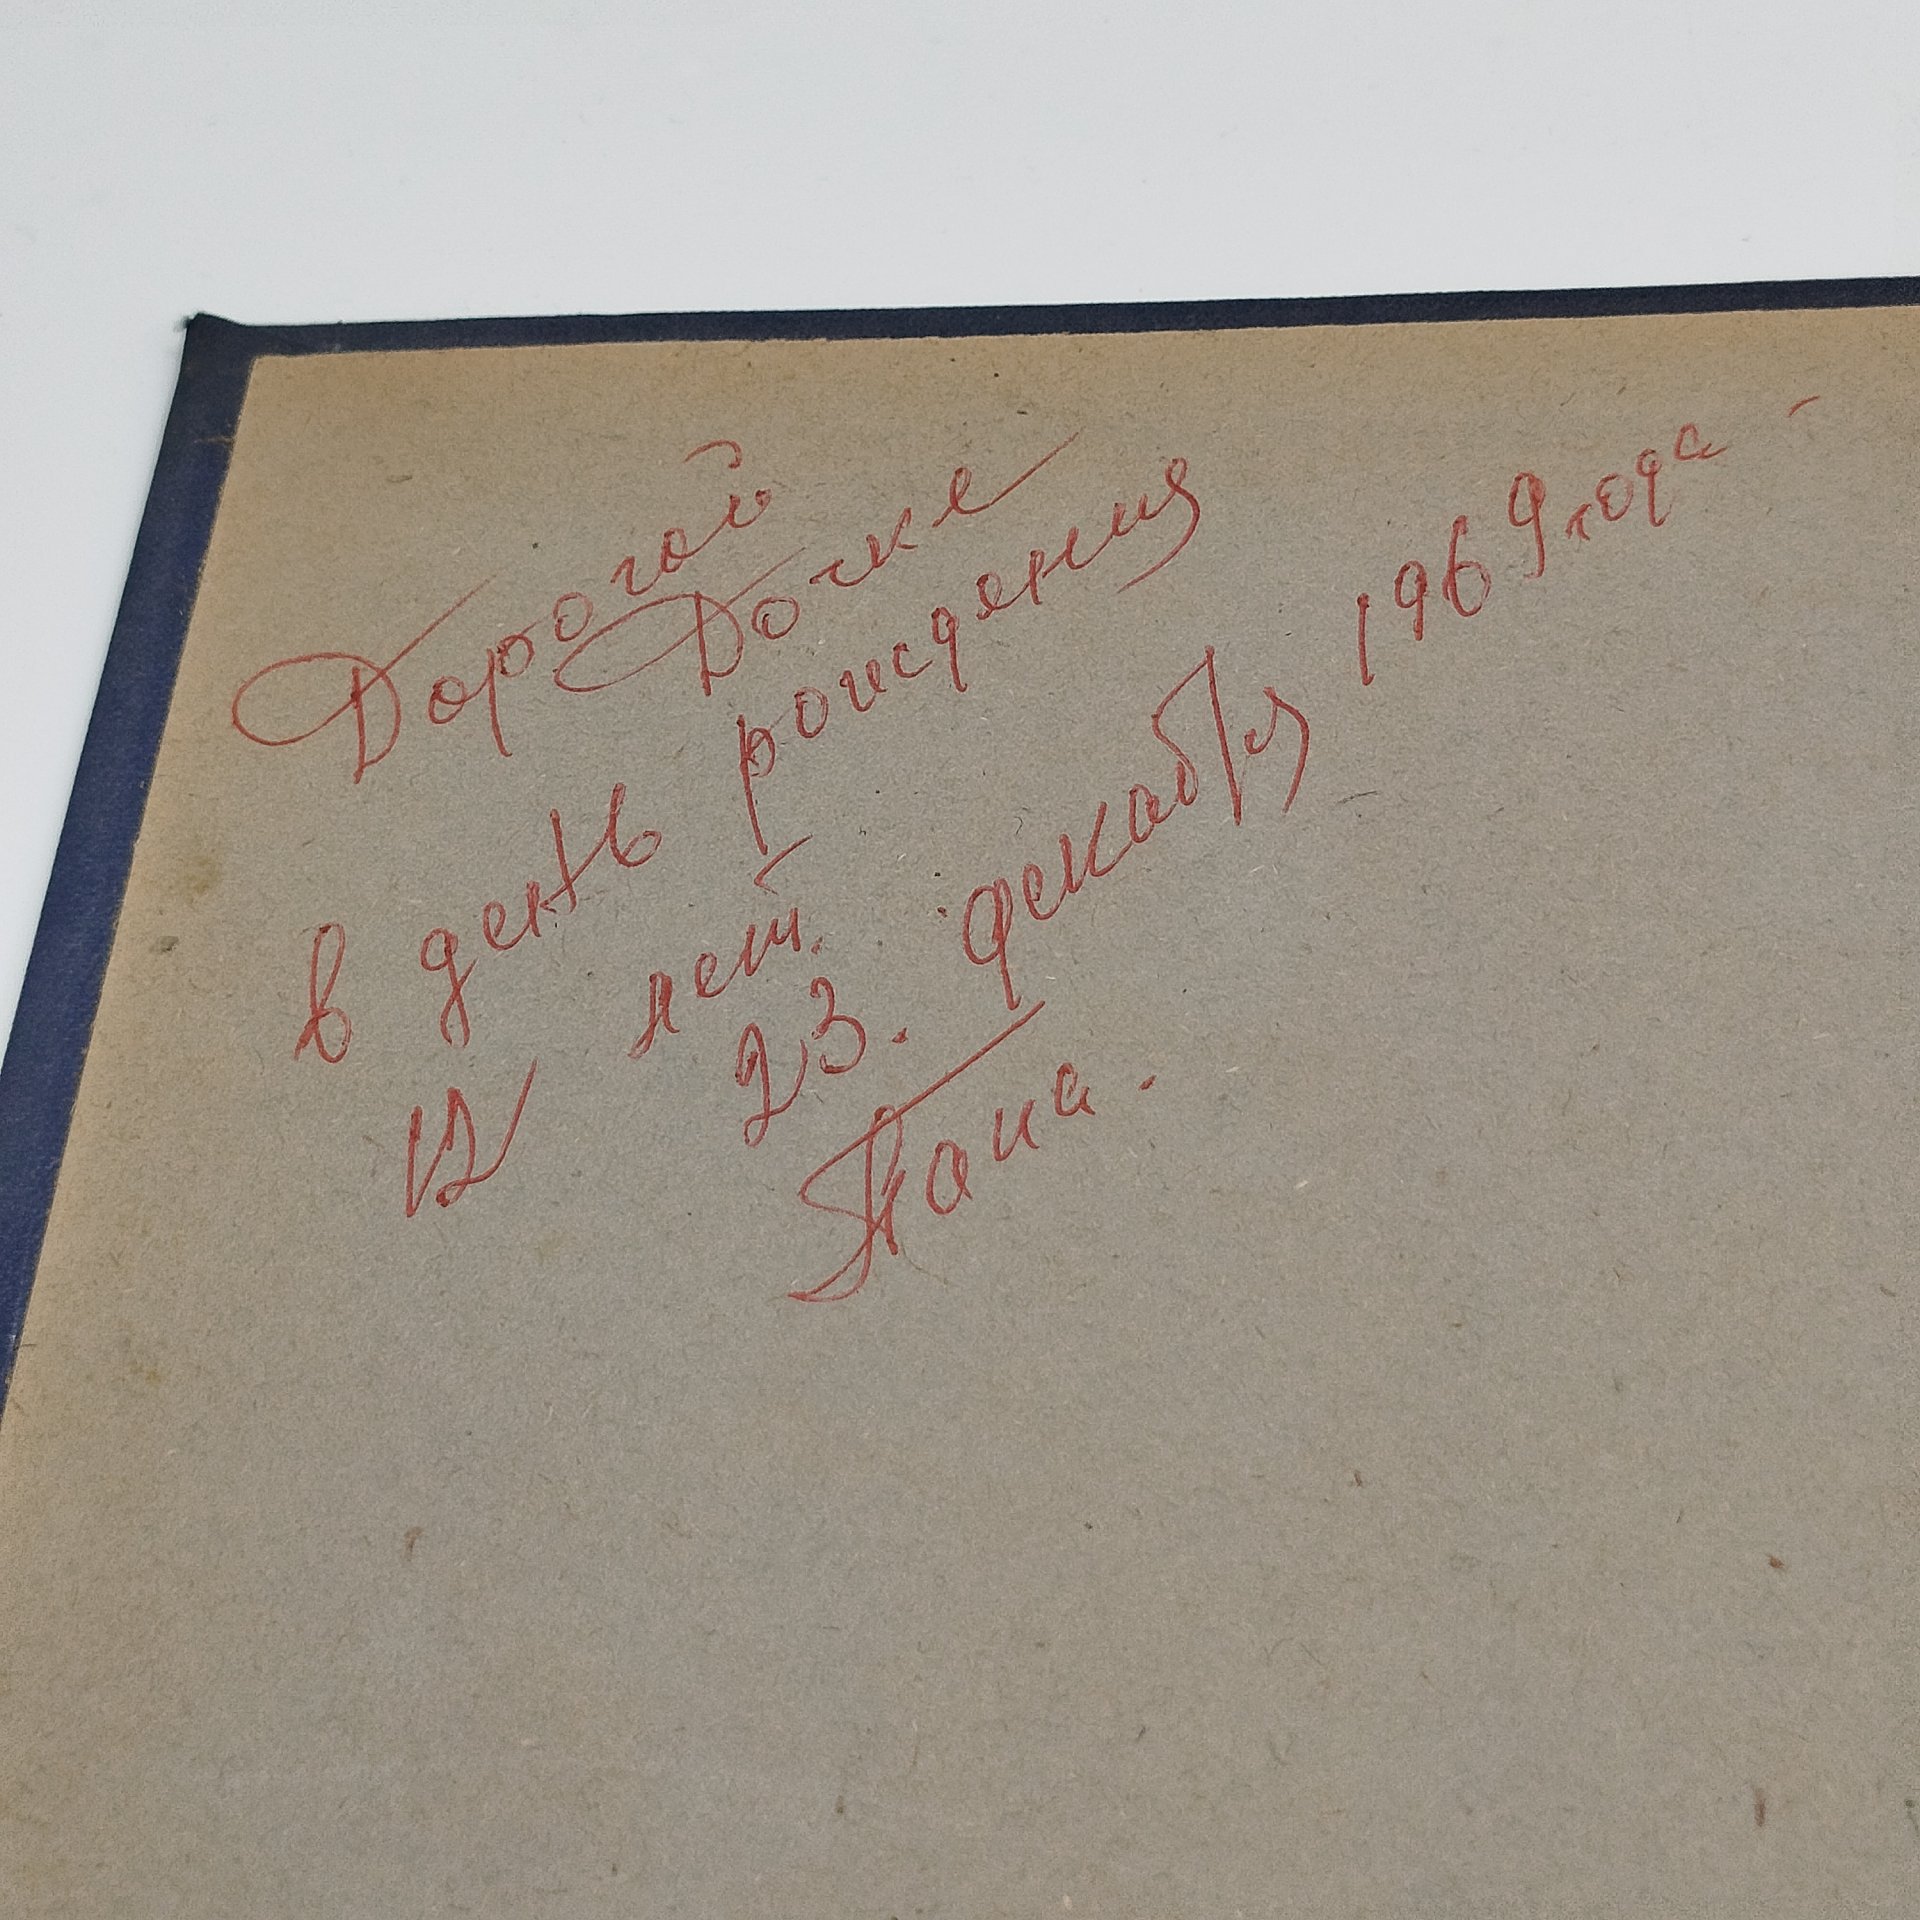 Дорогой
Дочке
в день рождения
12 лет.
23. декабря 1969 года -
Папа.